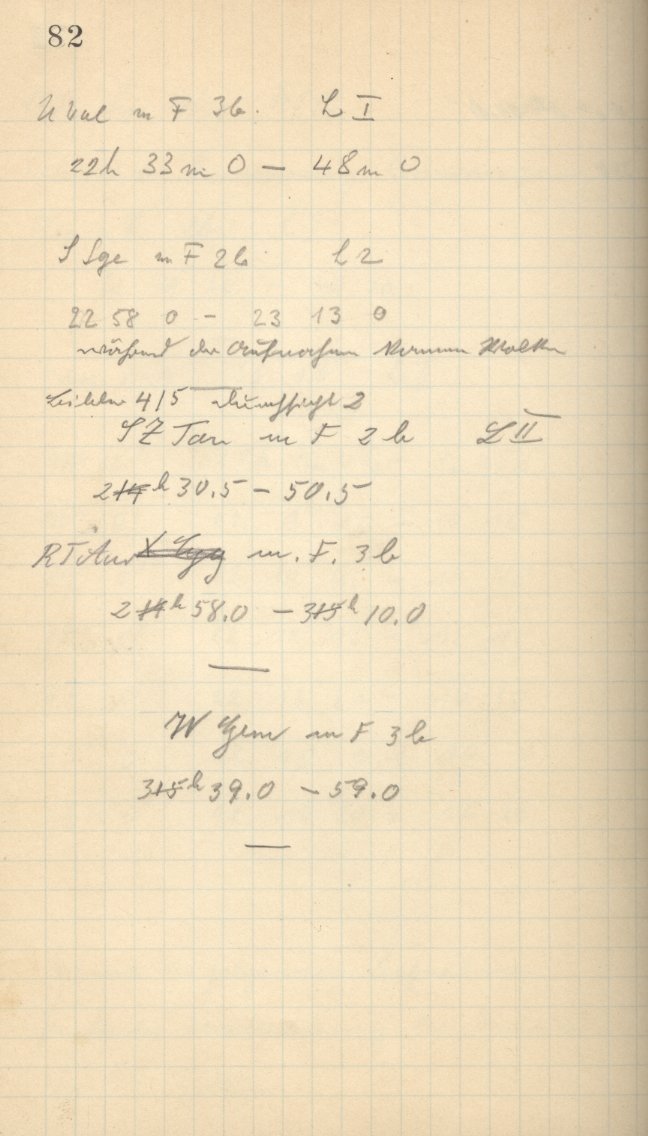 82
U Vul m F 3b. L I
22h 33m 0 – 48m 0
S Sge m F 2b. L 2
22 58 0 – 23 13 0
während der Aufnahmen kommen Wolken
Bilder 4/5 Durchsicht 2
SZ Tau m F 2b L II
214h 30.5 – 50.5
RT Aur X Cyg m. F. 3b
214h 58.0 – 315h 10.0
W Gem m F 3b
315h 39.0 – 59.0